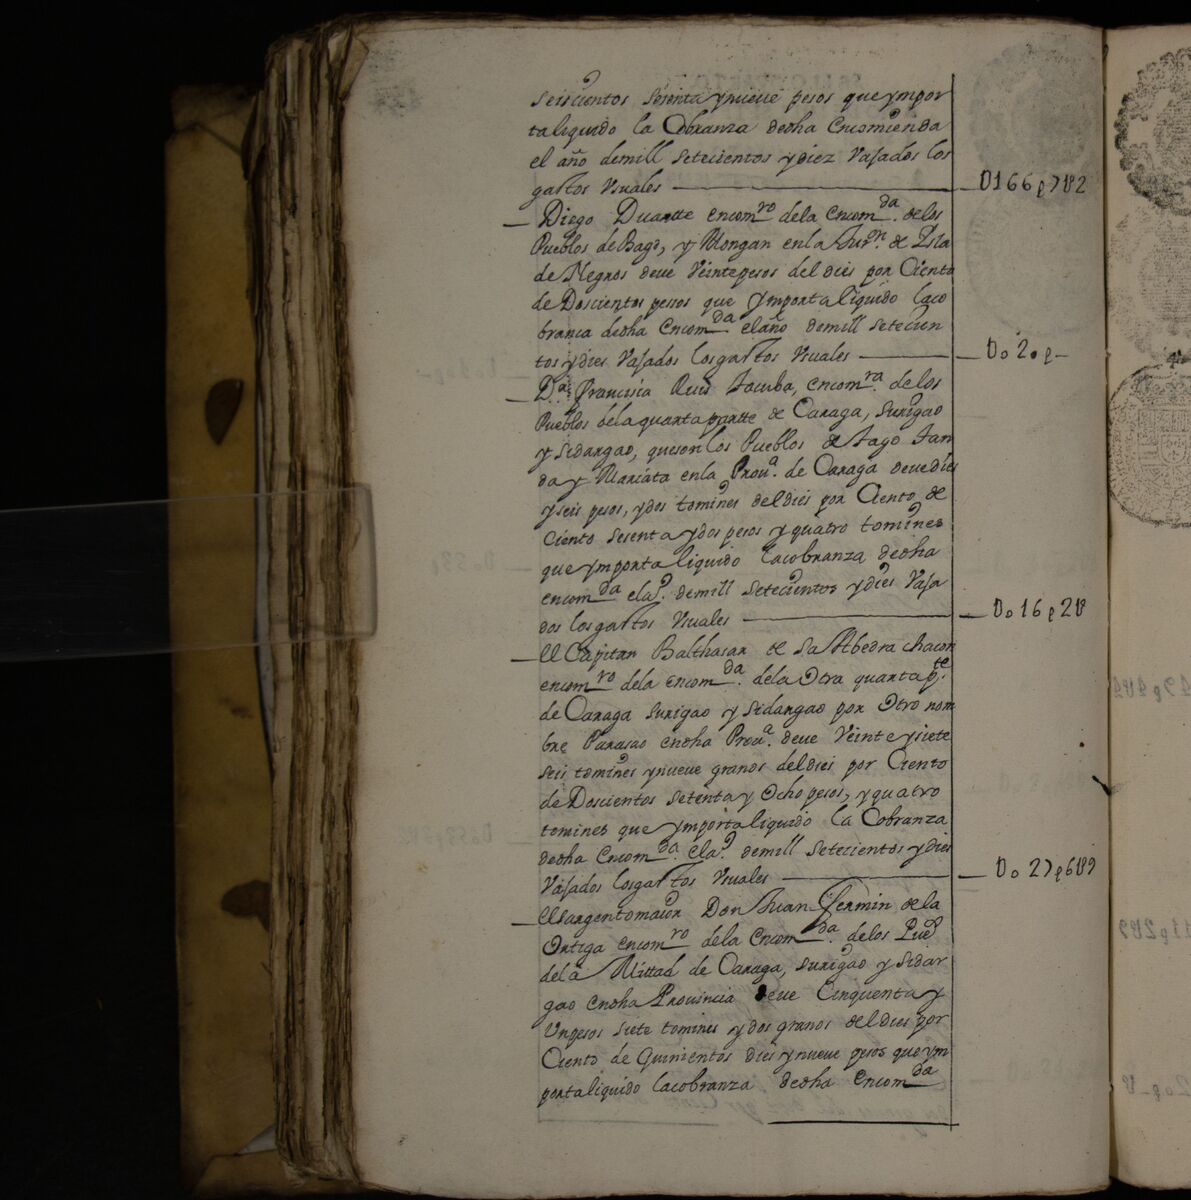 seiscientos sesenta y nueve pesos que ympor
ta liquido la Cobranza de dha Encomienda
el año de mill setecientos y diez Vajados los
gastos Vsuales — 0166 p 7 t 2
Diego Duartte encom.ro de la Encom.da de los
Pueblos de Bago, y Mongan en la Jur.on de Isla
de Negros deve Veinte pesos del dies por Ciento
de Doscientos pessos que ymporta liquido la co
branca de dha Encom.da el año de mill setecien
tos y dies Vajados los gastos Vsuales — 0o20 p —
D.a Francisca Ruis encom.ra de los
Pueblos de la quarta partte de Caraga, Surigao
y Sidargao, que son los Pueblos de Tago Tan
da y Mariata en la Prou.a de Caraga deve dies
y seis pesos, y dos tomines del dies por Ciento de
Ciento sesenta y dos pesos y quatro tomines
que ymporta liquido la cobranza de dha
encom.da el a.o de mill setecientos y dies Vaja
dos los gastos Vsuales — 0o16 p 2 t
El Capitan Balthasar de chacon
encom.ro de la encom.da de la Otra quarta p.te
de Caraga Surigao y Sidargao por Otro nom
bre Parasao en dha Prou.a deve Veinte y siete
seis tomines y nueve granos del dies por Ciento
de Doscientos setenta y Ocho pesos, y quatro
tomines que ymporta liquido la Cobranza
de dha Encom.da el a.o de mill setecientos y dies
Vajados los gastos Vsuales — 0o27 p 6 t 9
El sargento maior Don Juan Fermin de la
Ortiga encom.ro de la Encom.da de los Pue.s
de la Mittad de Caraga, Surigao y Sidar
gao en dha Prouincia deve Cinquenta y
Vn pesos siete tomines y dos granos del dies por
Ciento de Quinientos dies y nueve pesos que ym
porta liquido la cobranza de dha Encom.da